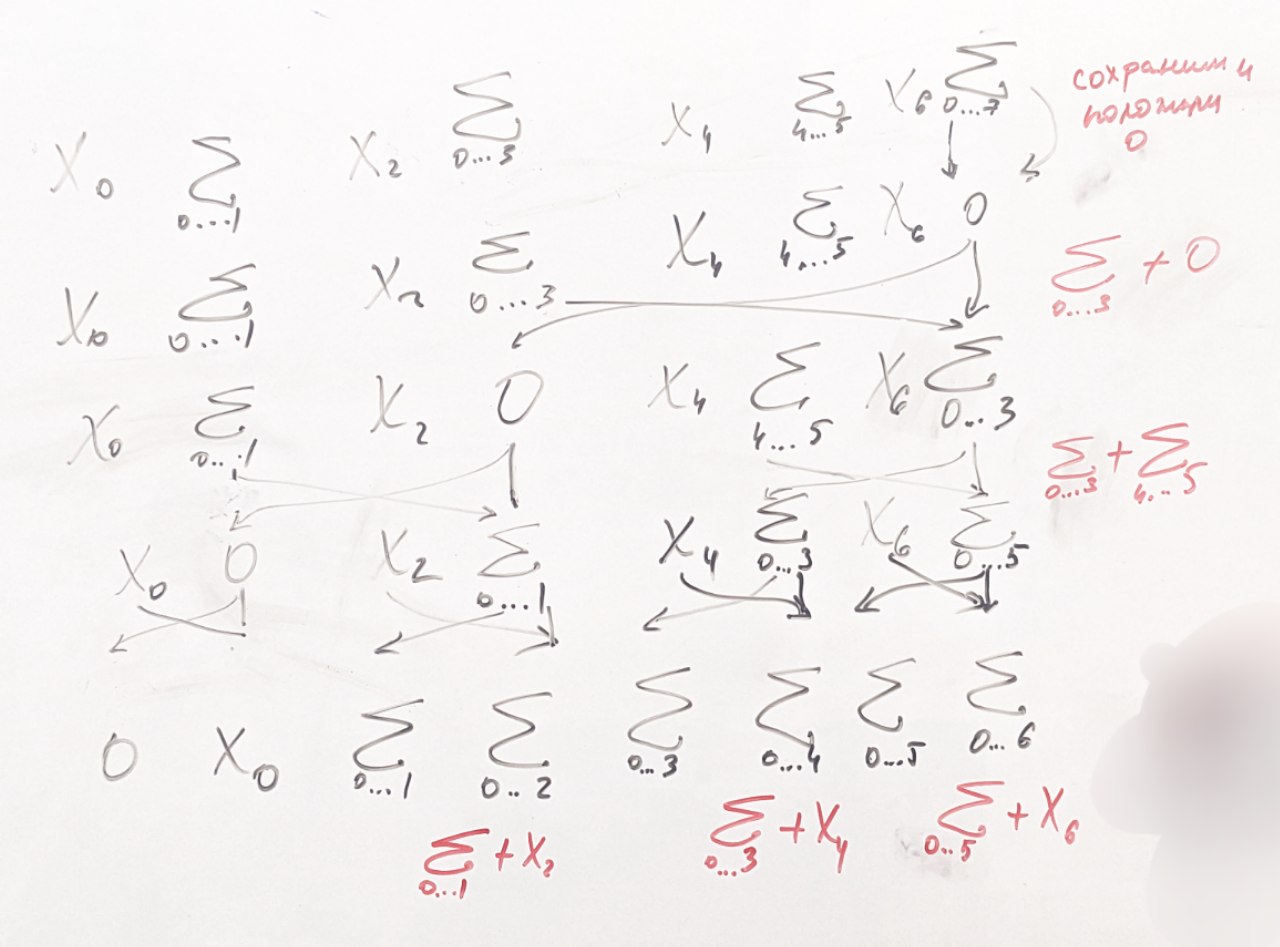 X₀ Σ 0...1 X₂ Σ 0...3 X₄ Σ 4...5 X₆ Σ 0...7
сохраним и
положим
0
X₀ Σ 0...1 X₂ Σ 0...3 X₄ Σ 4...5 X₆ 0
Σ 0...3 + 0
X₀ Σ 0...1 X₂ 0 X₄ Σ 4...5 X₆ Σ 0...3
Σ 0...3 + Σ 4...5
X₀ 0 X₂ Σ 0...1 X₄ Σ 0...3 X₆ Σ 0...5
0 X₀ Σ 0...1 Σ 0..2 Σ 0...3 Σ 0...4 Σ 0...5 Σ 0...6
Σ 0...1 + X₂ Σ 0...3 + X₄ Σ 0..5 + X₆